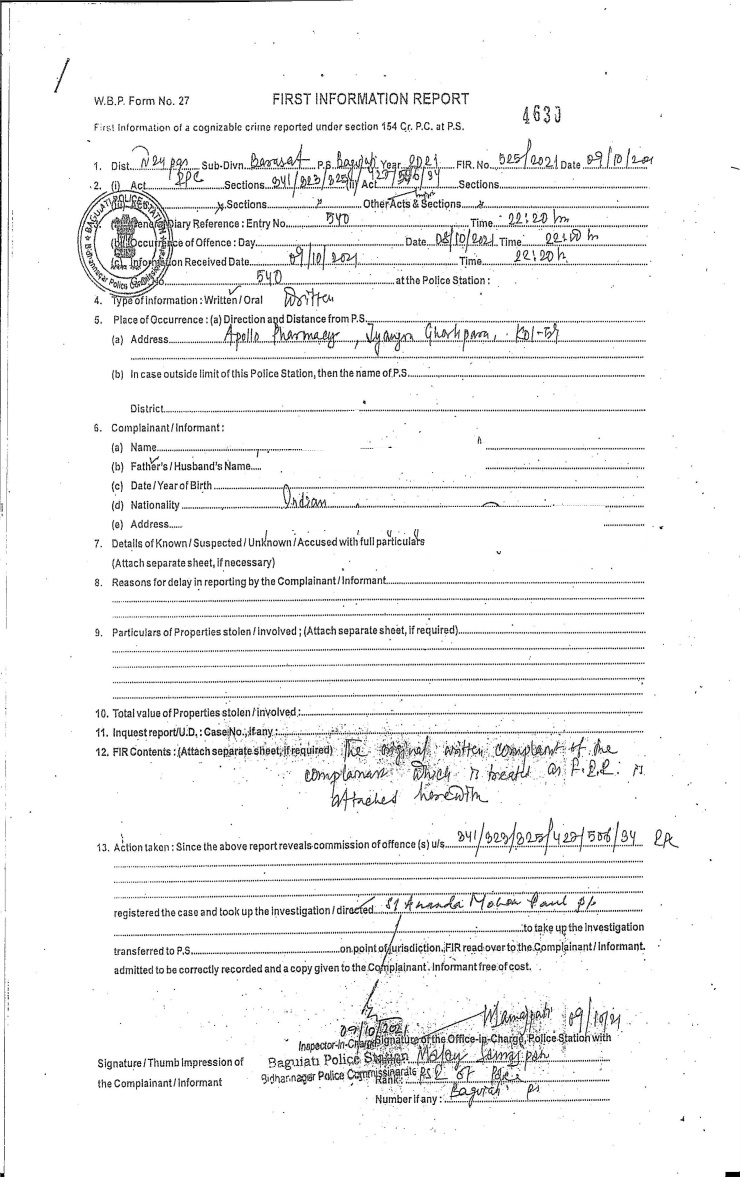 W.B.P. Form No. 27 FIRST INFORMATION REPORT 4630
First Information of a cognizable crime reported under section 154 Cr. P.C. at P.S.
1. Dist. N 24 pgs Sub-Divn. Barasat P.S. Baguiati Year 2021 FIR. No. 525/2021 Date 09/10/2021
2. (i) Act IPC Sections 341/323/325/ (ii) Act 427/506/34 Sections
Sections x Other Acts & Sections x
General Diary Reference : Entry No. 540 Time 22:20 hr
(b) Occurrence of Offence : Day Date 08/10/2021 Time 22:00 h
(c) Information Received Date 09/10/2021 Time 22:20 h
No. 540 at the Police Station :
4. Type of Information : Written / Oral Written
5. Place of Occurrence : (a) Direction and Distance from P.S.
(a) Address Apollo Pharmacy, Jyangra Ghoshpara, Kol-59
(b) In case outside limit of this Police Station, then the name of P.S.
District
6. Complainant / Informant :
(a) Name
(b) Father's / Husband's Name
(c) Date / Year of Birth
(d) Nationality Indian
(e) Address
7. Details of Known / Suspected / Unknown / Accused with full particulars
(Attach separate sheet, if necessary)
8. Reasons for delay in reporting by the Complainant / Informant
9. Particulars of Properties stolen / involved ; (Attach separate sheet, if required)
10. Total value of Properties stolen / involved :
11. Inquest report / U.D, : Case No., if any :
12. FIR Contents : (Attach separate sheet, if required) The original written complaint of the
complainant which is treated as F.I.R. is
attached herewith
13. Action taken : Since the above report reveals commission of offence (s) u/s. 341/323/325/427/506/34 IPC
registered the case and took up the investigation / directed SI Ananda Mohan Paul
to take up the investigation
transferred to P.S. on point of jurisdiction. FIR read over to the Complainant / Informant.
admitted to be correctly recorded and a copy given to the Complainant. Informant free of cost.
09/10/21
09/10/2021
Inspector-in-Charge Signature of the Office-in-Charge, Police Station with
Signature / Thumb Impression of Baguiati Police Station
the Complainant / Informant Bidhannagar Police Commissionerate Rank :
Number if any : Baguiati PS